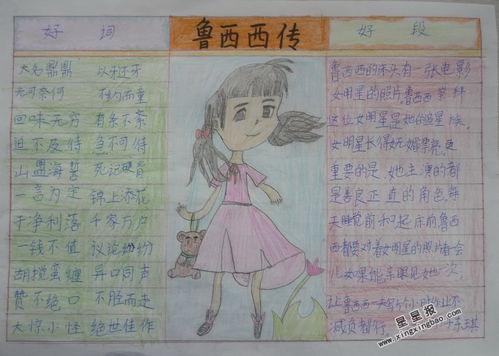 好词
鲁西西传
好段
大名鼎鼎 以牙还牙
无可奈何 不约而童
回味无穷 有条不紊
迫不及待 急不可待
山盟海誓 死记硬背
一言为定 锦上添花
干净利落 千家万户
一钱不值 议论纷纷
胡搅蛮缠 异口同声
赞不绝口 不胫而走
大惊小怪 绝世佳作
鲁西西的床头有一张电影
女明星的照片,鲁西西
这位女明星是她的追星族,
女明星长得
重要的是她主演的都
是善良正直的角色,每
天睡觉前和起床前鲁西
西都要对着女明星的照片看会
儿,如果能亲眼见她一次,
让鲁西西一天写个小时作业不
减负都行。
星星报
www.xingxingbao.com